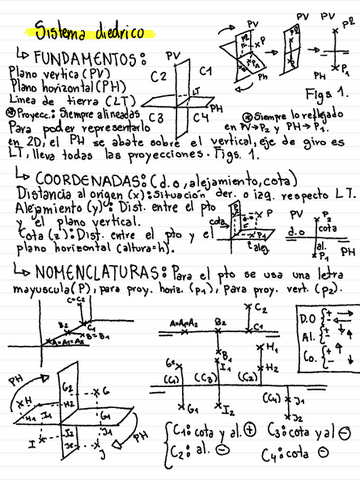 Sistema diédrico
↳ FUNDAMENTOS:
Plano vertica (PV)
Plano horizontal (PH)
Linea de tierra (LT)
⊛ Proyecc.: Siempre alineadas
Para poder representarlo
en 2D, el PH se abate sobre el vertical, eje de giro es
LT, lleva todas las proyecciones. Figs. 1.
PV
C2
C1
LT
C3
C4
PH
PV
P2
P
P1
PH
PV
P2
P1
PH
Figs 1.
⊛ Siempre lo reflejado
en PV→P2 y PH→P1.
↳ COORDENADAS: (d.o, alejamiento, cota)
Distancia al origen (x): Situación der. o izq. respecto LT.
Alejamiento (y): Dist. entre el pto
y el plano vertical.
Cota (z): Dist. entre el pto y el
plano horizontal (altura=h).
cota
P
alej.
PV
P2
d.o
cota
al.
P1
PH
↳ NOMENCLATURAS: Para el pto se usa una letra
mayuscula (P), para proy. horiz. (p1), para proy. vert. (p2).
C=C2
B2
C1
B=B1
A=A1=A2
A=A1=A2
B2
B1
C2
C1
H1
H2
G2
(C1)
G1
(C3)
I1
I2
(C2)
(C4)
J1
J2
D.O { + -
Al. { + -
Co. { + -
PH
H
H2
H1
G2
G
G1
I1
I
I2
J1
J
PH
C1: cota y al. ⊕
C2: al. ⊖
C3: cota y al ⊖
C4: cota ⊖